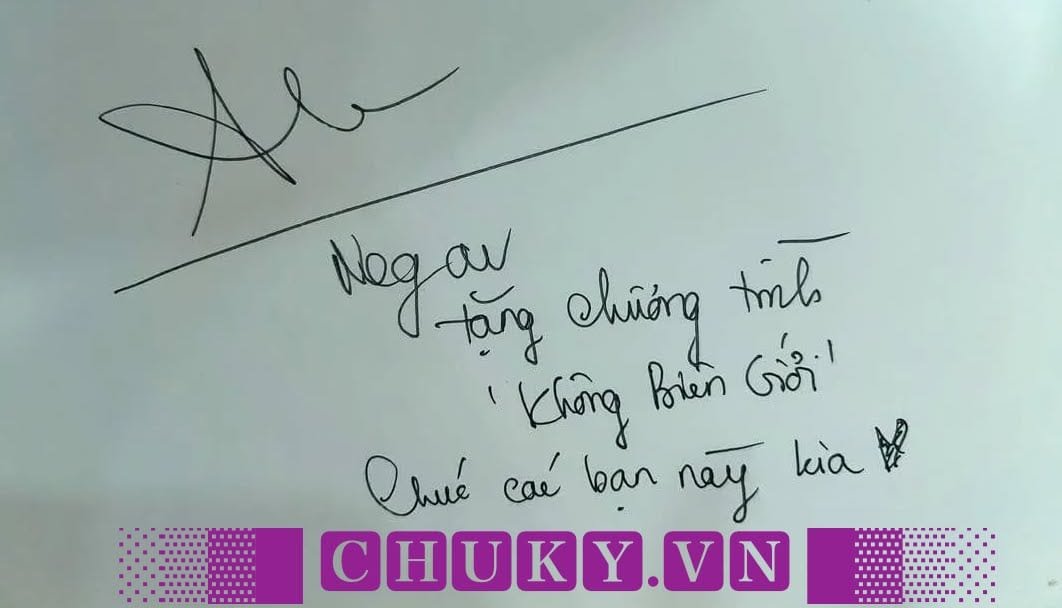 Negav
tặng chương trình
'Không Biên Giới'
Chúc các bạn này kìa
CHUKY.VN